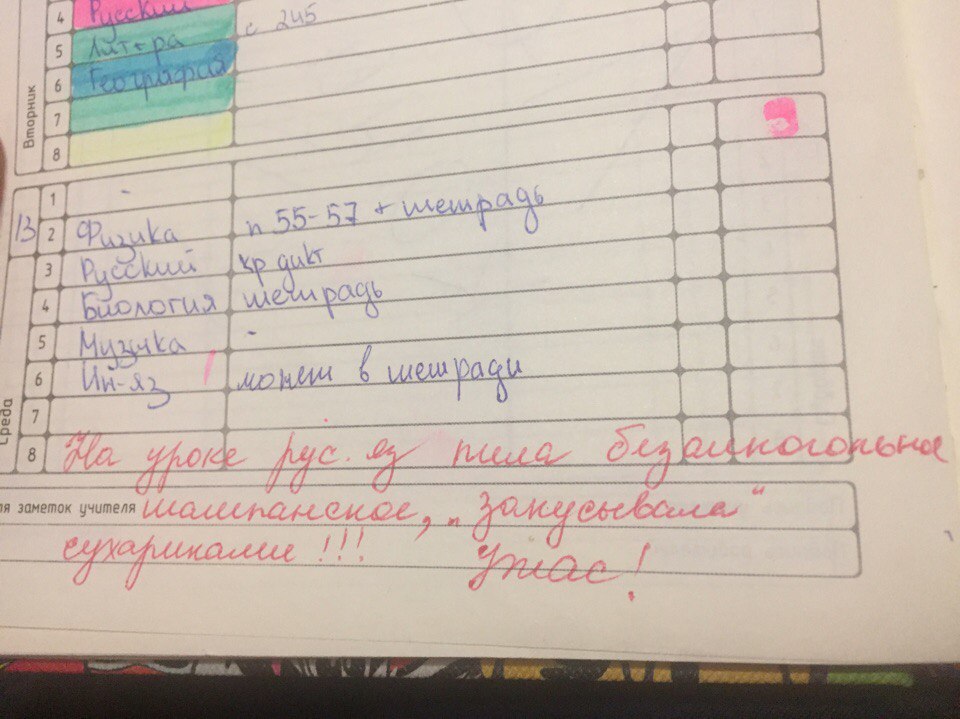 Вторник
4 Русский
5 Лит-ра с 245
6 География
7
8
Среда
13
1 -
2 Физика п 55-57 + тетрадь
3 Русский кр дикт
4 Биология тетрадь
5 Музыка -
6 Ин-яз может в тетради
7
8 На уроке рус. яз пила безалкогольное
ля заметок учителя шампанское, „закусывала“
сухариками!!! Ужас!